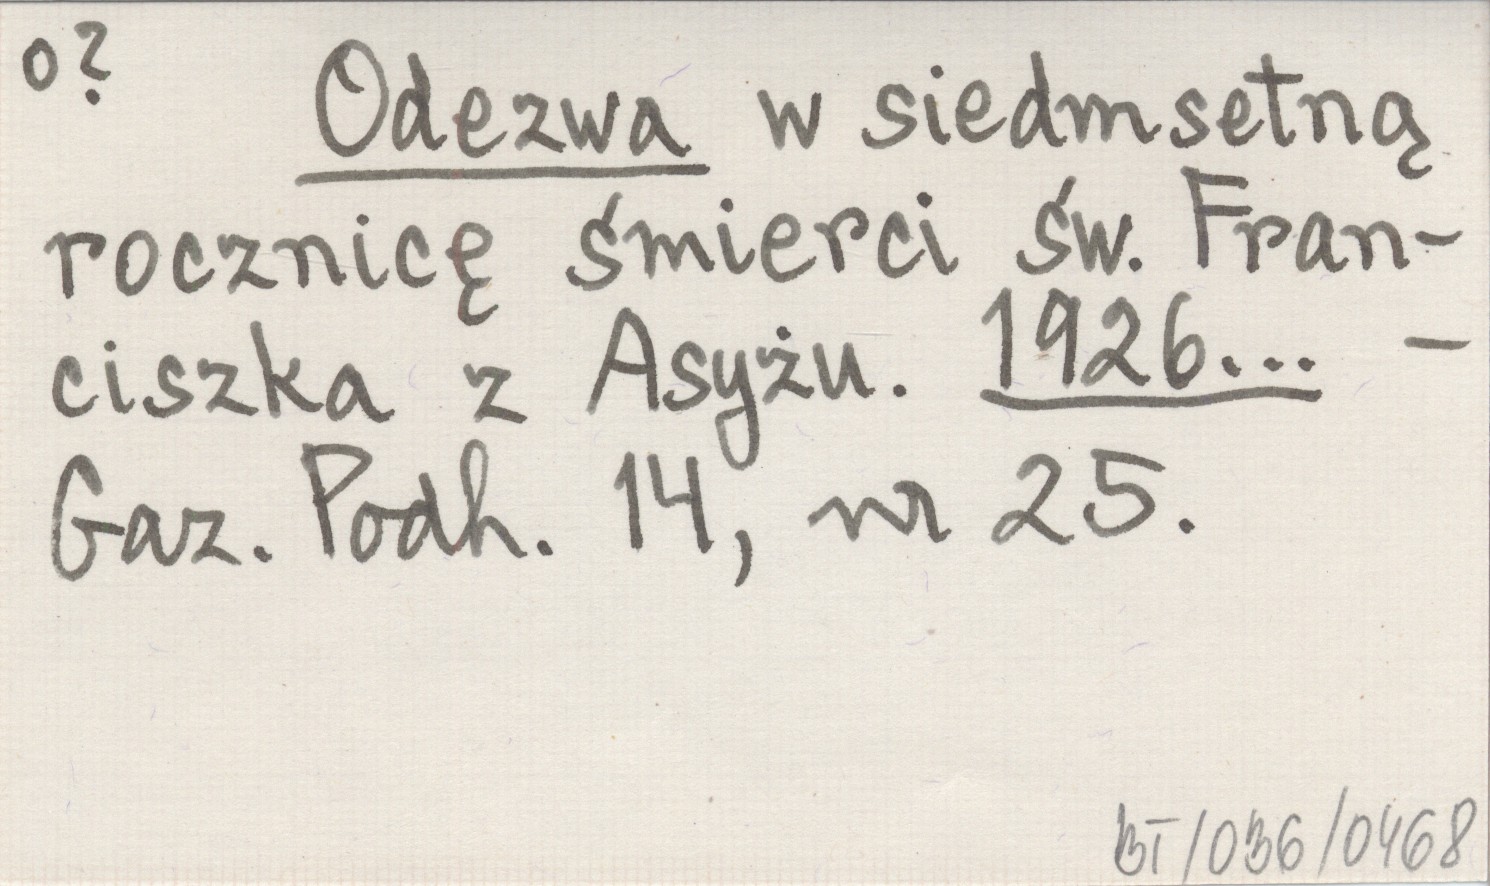 o?
Odezwa w siedmsetną
rocznicę śmierci św. Fran-
ciszka z Asyżu. 1926... -
Gaz. Podh. 14, nr 25.
BT/036/0468